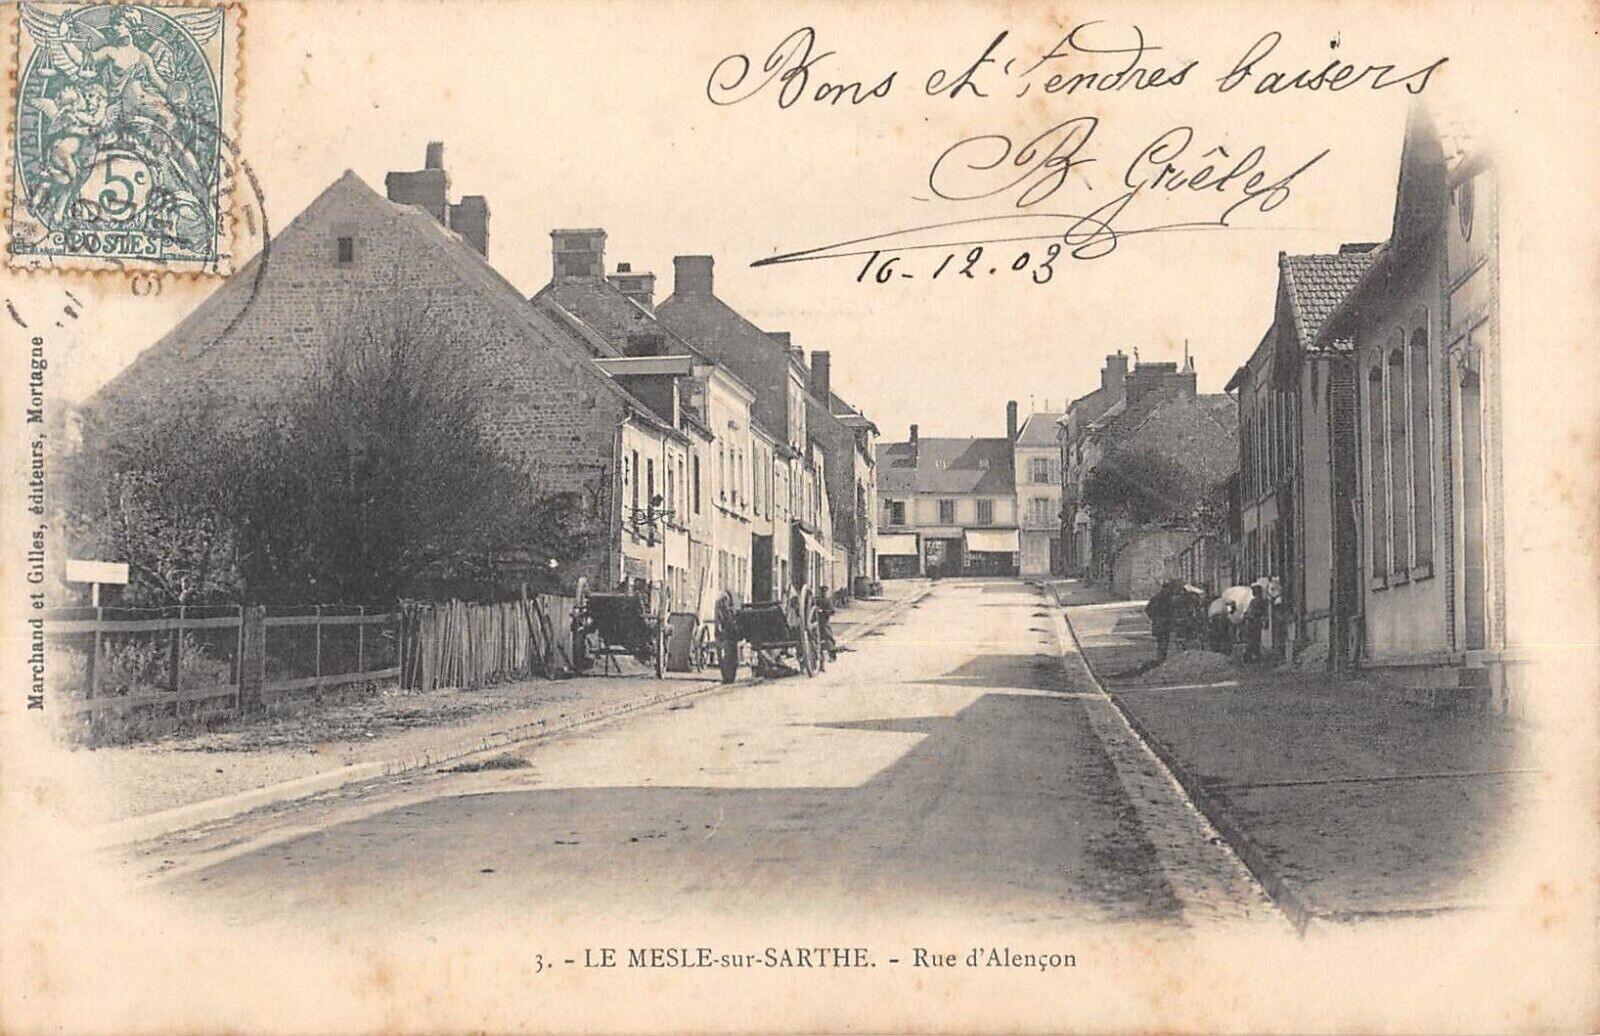 Bons et Tendres baisers
B. Grêlet
16-12.03
RÉPUBLIQUE
5c
POSTES
Marchand et Gilles, éditeurs, Mortagne
3. - LE MESLE-sur-SARTHE. - Rue d'Alençon